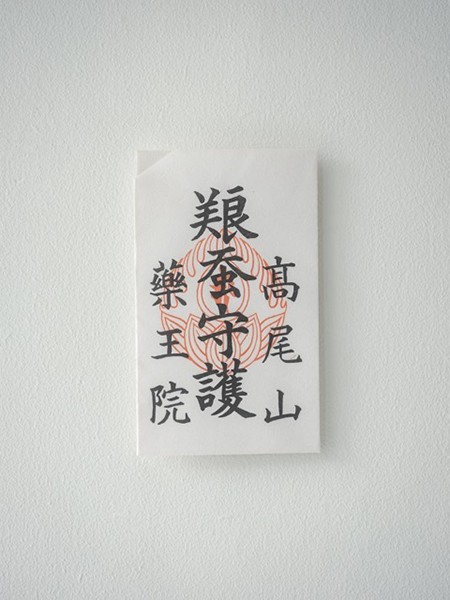 髙尾山
養蚕守護
藥王院